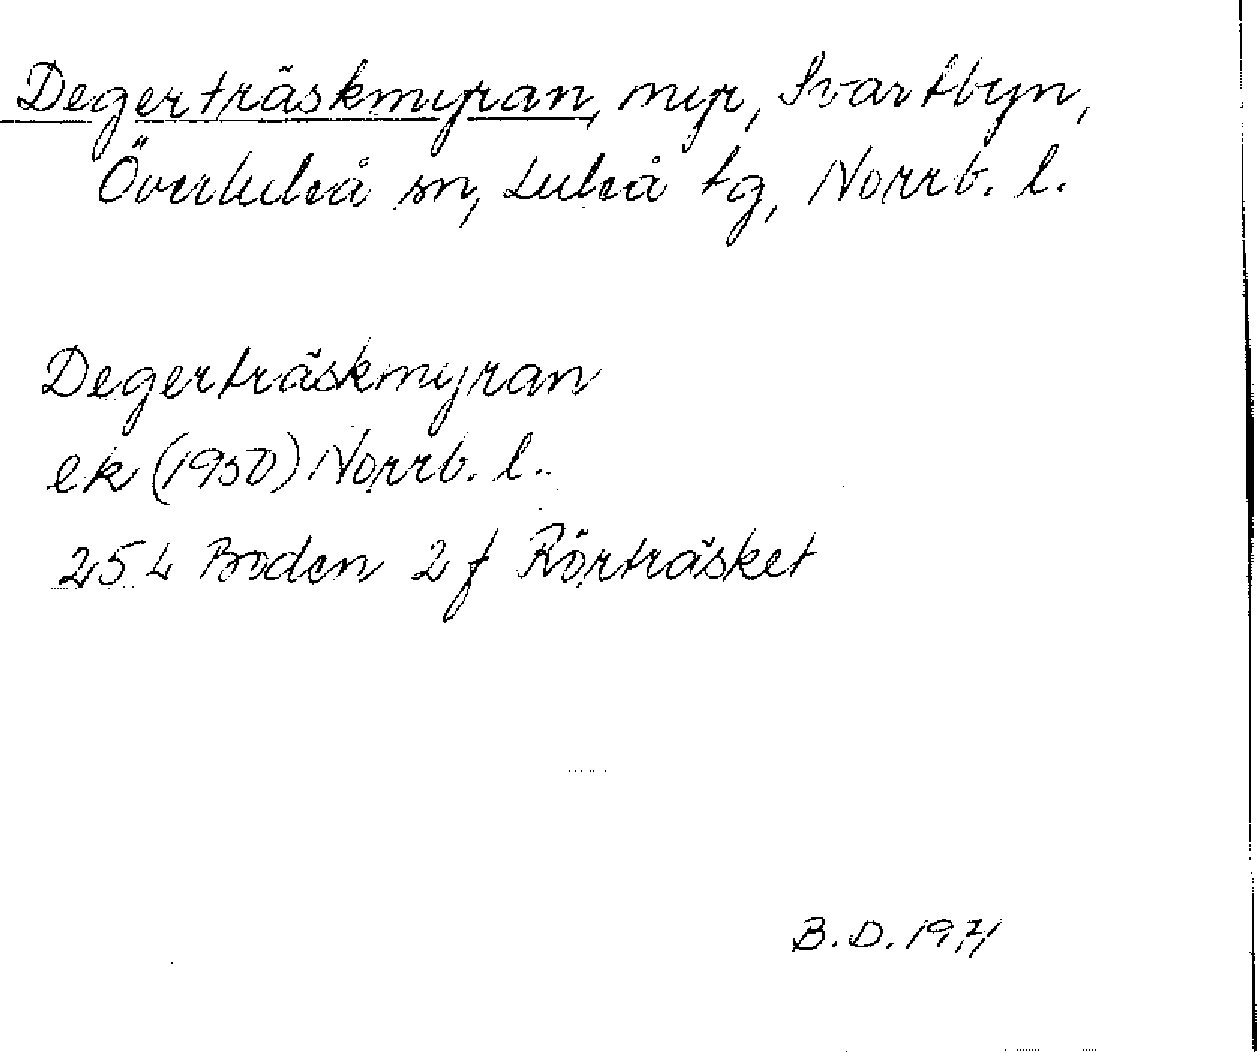 Degerträskmyran, myr, Svartbyn,
Överluleå sn, Luleå tg, Norrb. l.
Degerträskmyran
ek (1950) Norrb. l.
25 L Boden 2 f Rörträsket
B.D. 1971